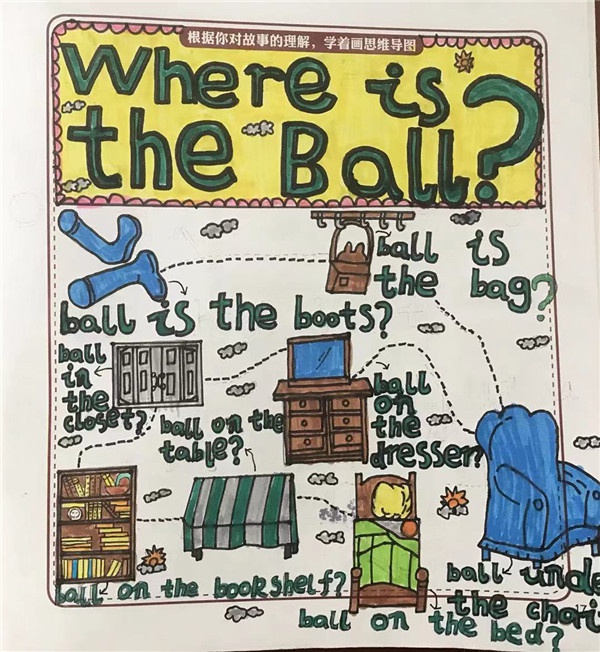 根据你对故事的理解，学着画思维导图
Where is
the Ball?
ball is
the bag?
ball is the boots?
ball
in
the
closet?
ball on the
table?
ball
on
the
dresser?
ball on the bookshelf?
ball unde
the chari
ball on the bed?